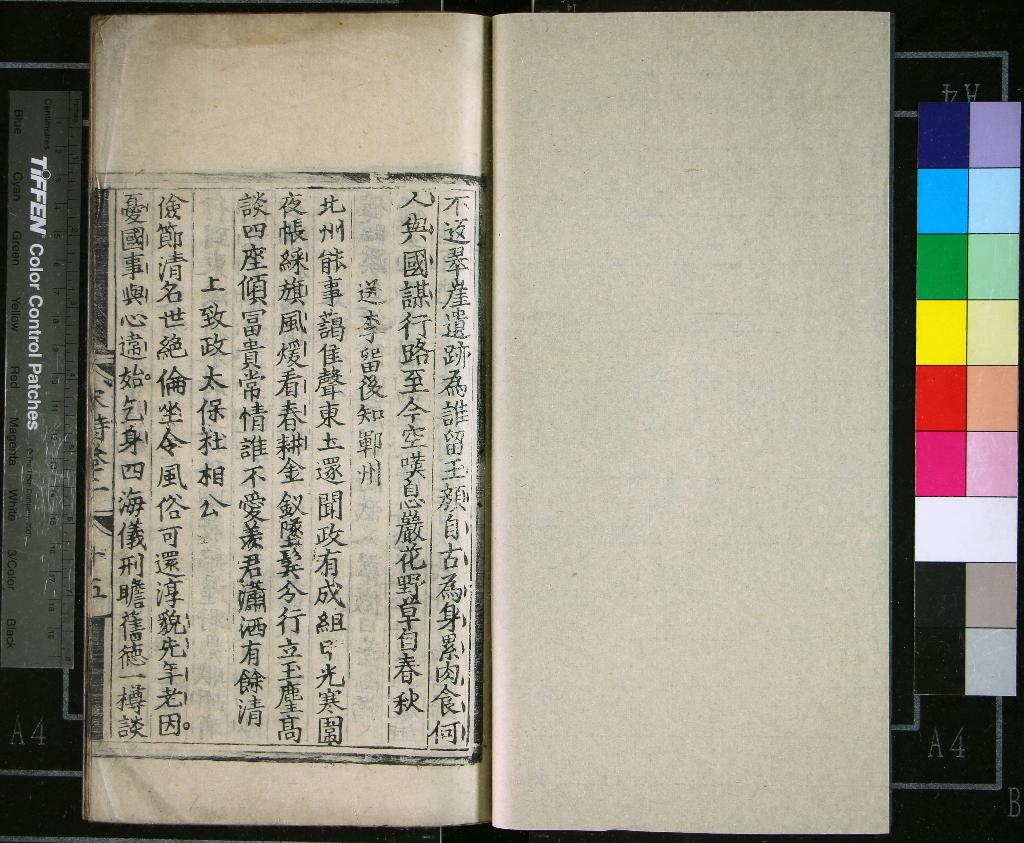 不返翠崖遺跡為誰留玉顔自古為身累肉食何
人與國謀行路至今空嘆息巖花野草自春秋
送李留後知鄆州
北州能事藹佳聲東土還聞政有成組甲光寒圍
夜帳綵旗風煖看春耕金釵墜鬂分行立玉麈高
談四座傾冨貴常情誰不愛羡君瀟洒有餘清
上致政太保杜相公
儉節清名世絶倫坐令風俗可還淳貌先年老因
憂國事與心違始乞身四海儀刑瞻舊徳一樽談
TIFFEN Color Control Patches
Centimetres
Inches
Blue Cyan Green Yellow Red Magenta White 3/Color Black
A4
A4
A4
B